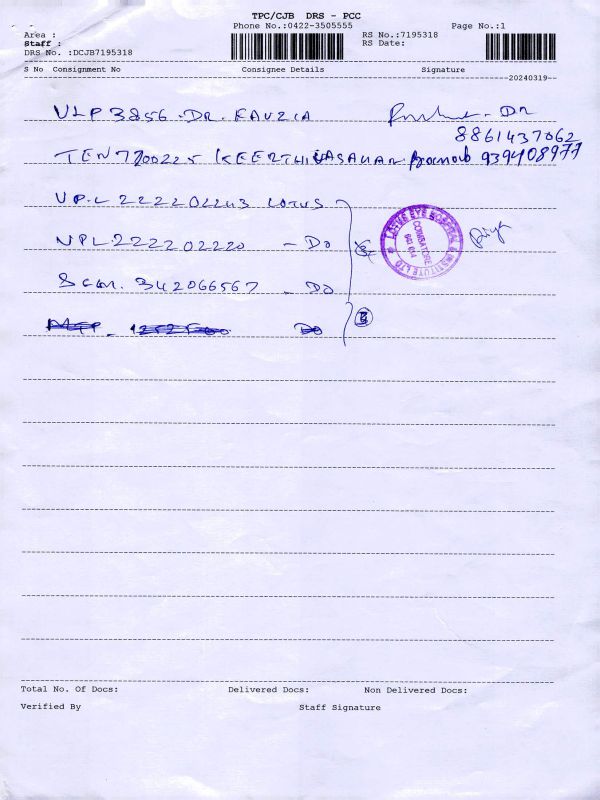 TPC/CJB DRS - PCC
Phone No.:0422-3505555
Page No.:1
Area :
RS No.:7195318
Staff :
RS Date:
DRS No. :DCJB7195318
S No Consignment No Consignee Details Signature
20240319
VLP3856 DR. FAUZIA DR
8861437062
TEN7700225 KEERTHIVASAHAN 9394108977
VPL 2222202243 LOTUS
NPL 2222202220 - DO
SCM. 342066567 - DO
LOTUS EYE HOSPITAL & INSTITUTE LTD
COIMBATORE
641 014
Priya
Total No. Of Docs: Delivered Docs: Non Delivered Docs:
Verified By Staff Signature